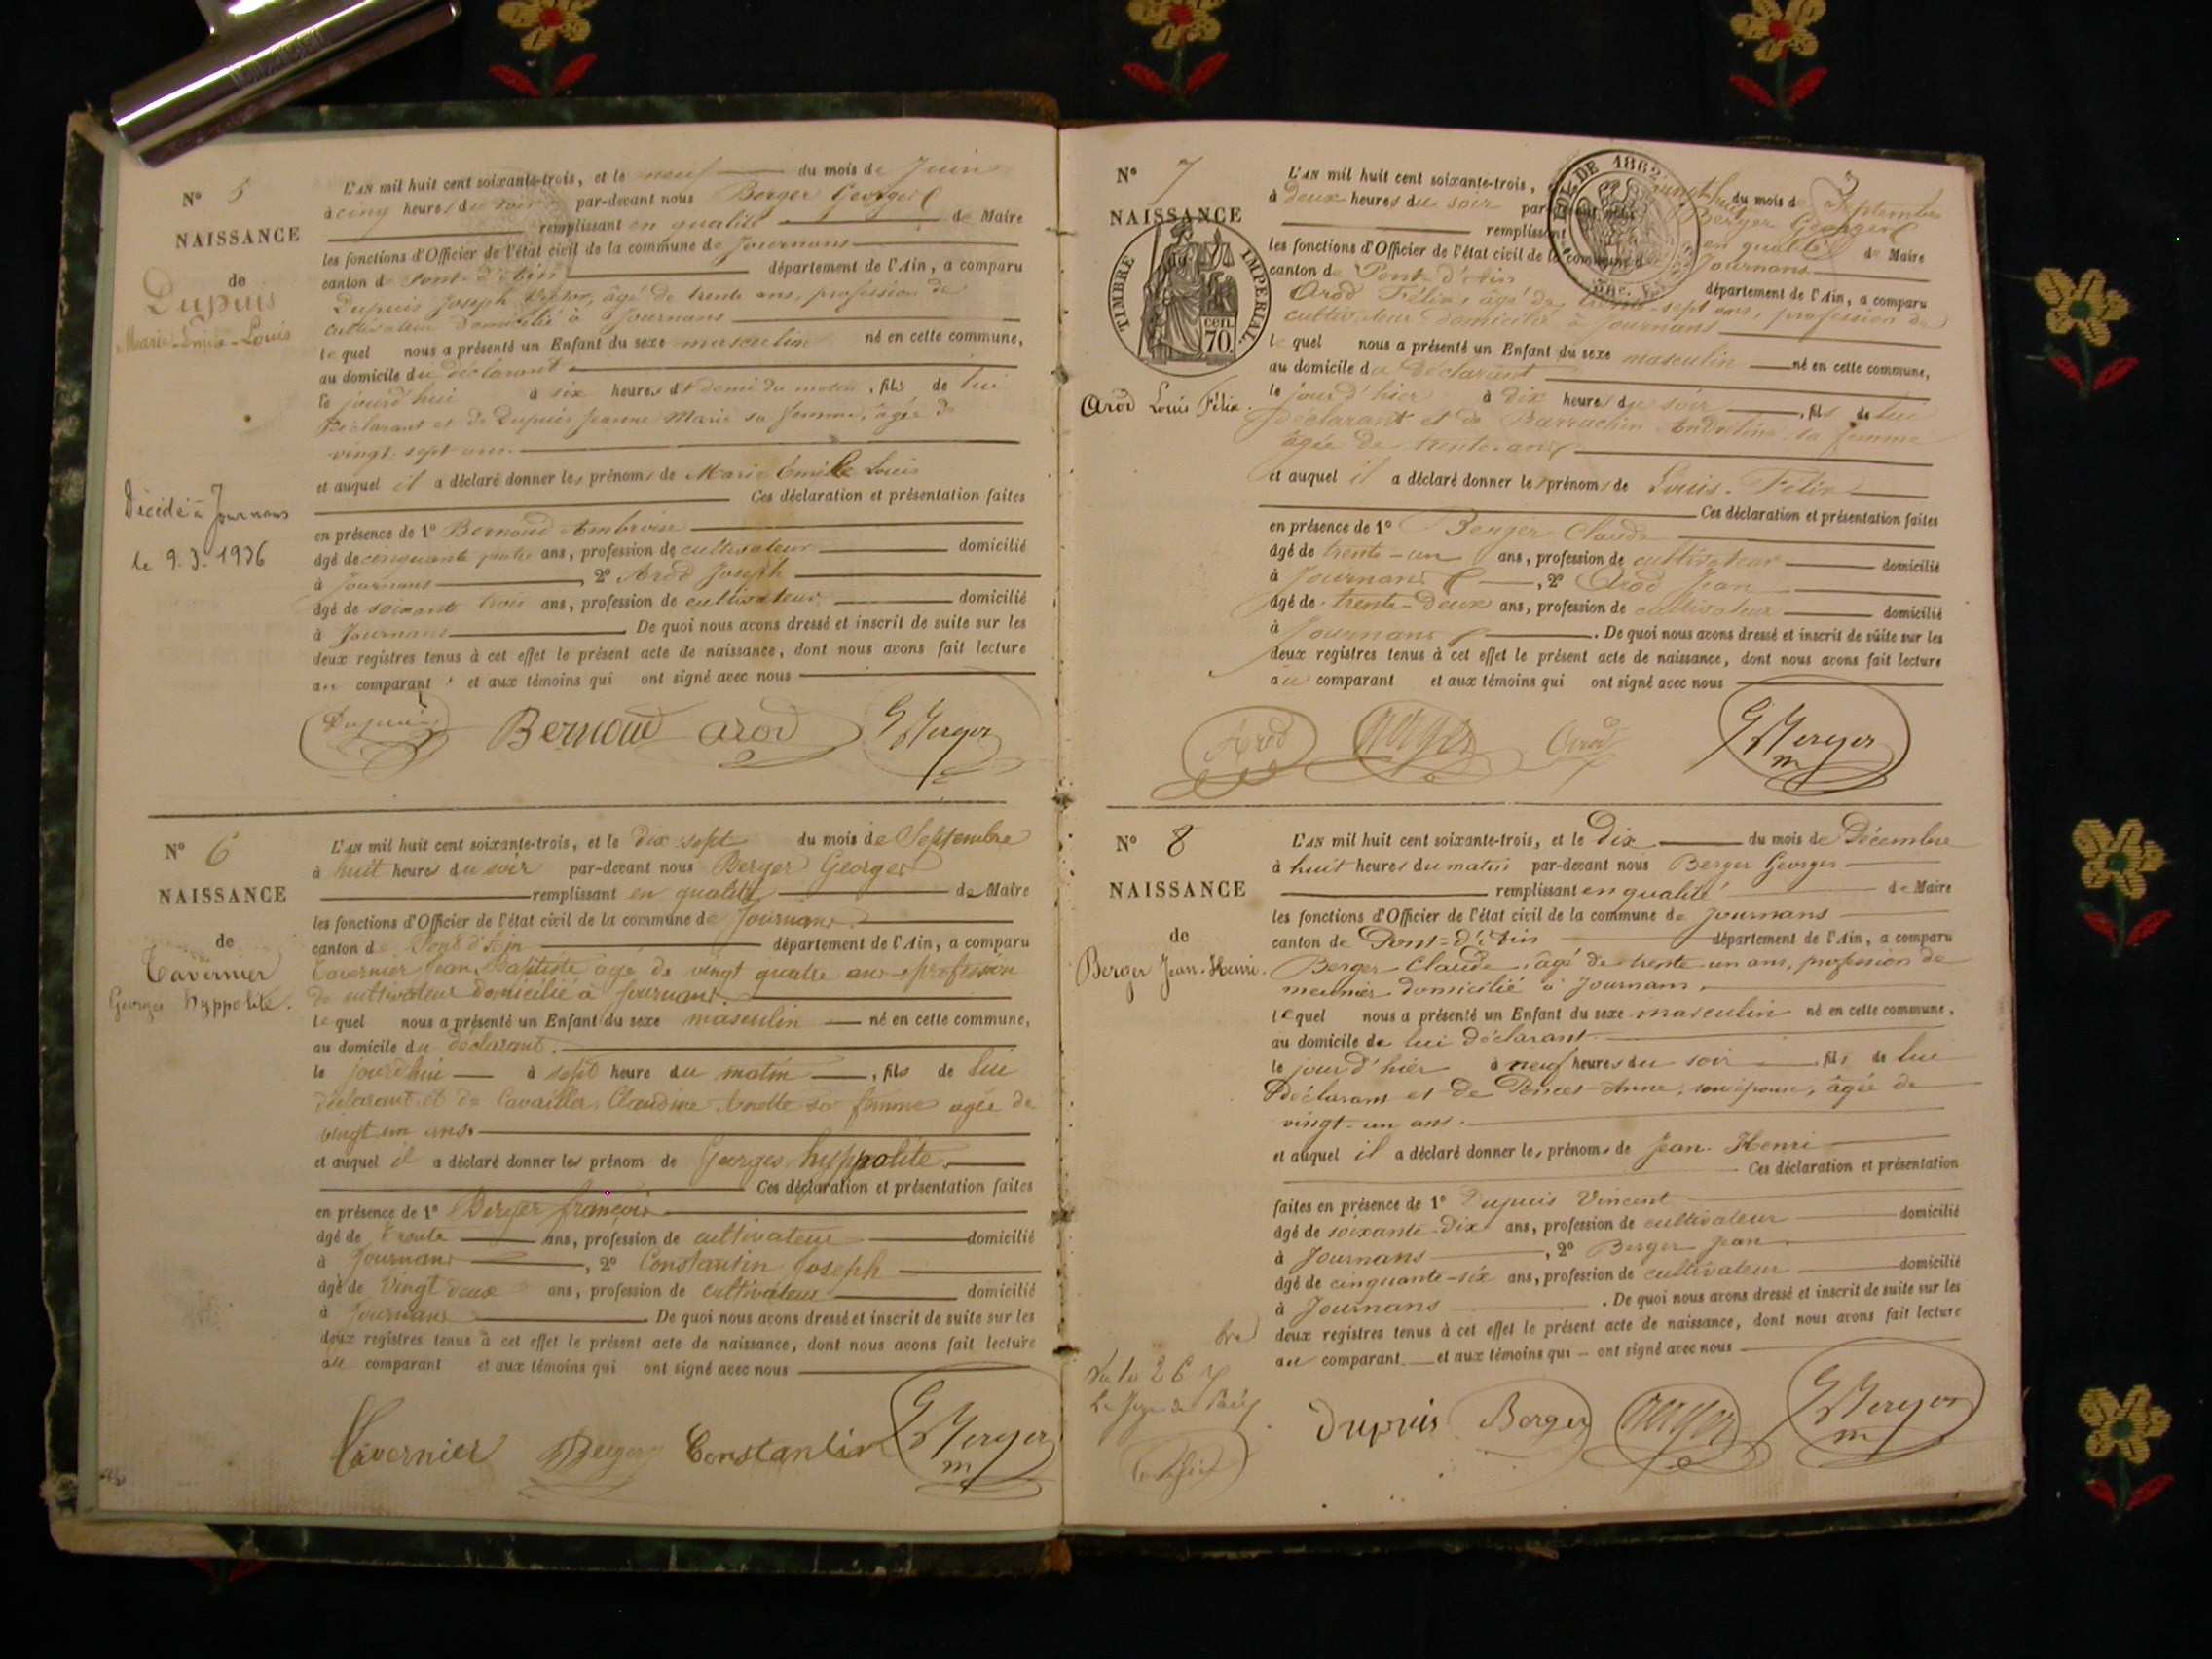 N° 5
NAISSANCE
de
Dupuis
Marie-Emile-Louis
Décédé à Journans
le 9.3.1936
L'AN mil huit cent soixante-trois, et le neuf du mois de Juin
à cinq heures du soir par-devant nous Berger Georges
remplissant en qualité de Maire
les fonctions d'Officier de l'état civil de la commune de Journans
canton de Pont-d'Ain département de l'Ain, a comparu
Dupuis Joseph, âgé de trente ans, profession de
cultivateur domicilié à Journans
lequel nous a présenté un Enfant du sexe masculin né en cette commune,
au domicile du déclarant
le jourd'hui à six heures et demi du matin, fils de lui
déclarant et de Dupuis Jeanne Marie sa femme, âgée de
vingt-sept ans
et auquel il a déclaré donner les prénoms de Marie Emile Louis
Ces déclaration et présentation faites
en présence de 1° Bernoud Ambroise
âgé de cinquante quatre ans, profession de cultivateur domicilié
à Journans, 2° Arod Joseph
âgé de soixante trois ans, profession de cultivateur domicilié
à Journans. De quoi nous avons dressé et inscrit de suite sur les
deux registres tenus à cet effet le présent acte de naissance, dont nous avons fait lecture
au comparant et aux témoins qui ont signé avec nous
Dupuis Bernoud Arod G Berger
N° 6
NAISSANCE
de
Tavernier
Georges hyppolite.
L'AN mil huit cent soixante-trois, et le dix sept du mois de Septembre
à huit heures du soir par-devant nous Berger Georges
remplissant en qualité de Maire
les fonctions d'Officier de l'état civil de la commune de Journans
canton de Pont d'Ain département de l'Ain, a comparu
Tavernier Jean Baptiste âgé de vingt quatre ans profession
de cultivateur domicilié à Journans.
lequel nous a présenté un Enfant du sexe masculin né en cette commune,
au domicile du déclarant.
le jourdhui à sept heure du matin, fils de lui
déclarant et de Cavaillier Claudine Anette sa femme agée de
vingt un ans.
et auquel il a déclaré donner les prénom de Georges hyppolite.
Ces déclaration et présentation faites
en présence de 1° Berger françois
âgé de trente ans, profession de cultivateur domicilié
à Journans, 2° Constantin Joseph
âgé de vingt deux ans, profession de cultivateur domicilié
à Journans De quoi nous avons dressé et inscrit de suite sur les
deux registres tenus à cet effet le présent acte de naissance, dont nous avons fait lecture
au comparant et aux témoins qui ont signé avec nous
Tavernier Berger Constantin G Berger m
N° 7
NAISSANCE
de
TIMBRE IMPERIAL
70 cen.
Arod Louis Félix.
POL DE 1862
L'AN mil huit cent soixante-trois, vingt huit du mois de Septembre
à deux heures du soir par-devant nous Berger Georges
remplissant en qualité de Maire
les fonctions d'Officier de l'état civil de la commune de Journans
canton de Pont d'Ain département de l'Ain, a comparu
Arod Félix, âgé de trente-sept ans, profession de
cultivateur domicilié à Journans
lequel nous a présenté un Enfant du sexe masculin né en cette commune,
au domicile du déclarant
le jour d'hier à dix heures du soir, fils de lui
déclarant et de Barrachin sa femme
âgée de trente-ans
et auquel il a déclaré donner les prénoms de Louis-Félix
Ces déclaration et présentation faites
en présence de 1° Berger Claude
âgé de trente-un ans, profession de cultivateur domicilié
à Journans, 2° Arod Jean
âgé de trente-deux ans, profession de cultivateur domicilié
à Journans. De quoi nous avons dressé et inscrit de suite sur les
deux registres tenus à cet effet le présent acte de naissance, dont nous avons fait lecture
au comparant et aux témoins qui ont signé avec nous
Arod Berger Arod G Berger m
N° 8
NAISSANCE
de
Berger Jean-Henri.
L'AN mil huit cent soixante-trois, et le Dix du mois de Décembre
à huit heures du matin par-devant nous Berger Georges
remplissant en qualité de Maire
les fonctions d'Officier de l'état civil de la commune de Journans
canton de Pont-d'Ain département de l'Ain, a comparu
Berger Claude, âgé de trente-un ans, profession de
meunier domicilié à Journans,
lequel nous a présenté un Enfant du sexe masculin né en cette commune,
au domicile de lui déclarant
le jour d'hier à neuf heures du soir fils de lui
Déclarant et de Poncet Anne, son épouse, âgée de
vingt-un ans.
et auquel il a déclaré donner les prénoms de Jean-Henri
Ces déclaration et présentation
faites en présence de 1° Dupuis Vincent
âgé de soixante-dix ans, profession de cultivateur domicilié
à Journans, 2° Berger Jean
âgé de cinquante-six ans, profession de cultivateur domicilié
à Journans. De quoi nous avons dressé et inscrit de suite sur les
deux registres tenus à cet effet le présent acte de naissance, dont nous avons fait lecture
au comparant et aux témoins qui ont signé avec nous
Le Juge de Paix
Dupuis Berger Berger G Berger m